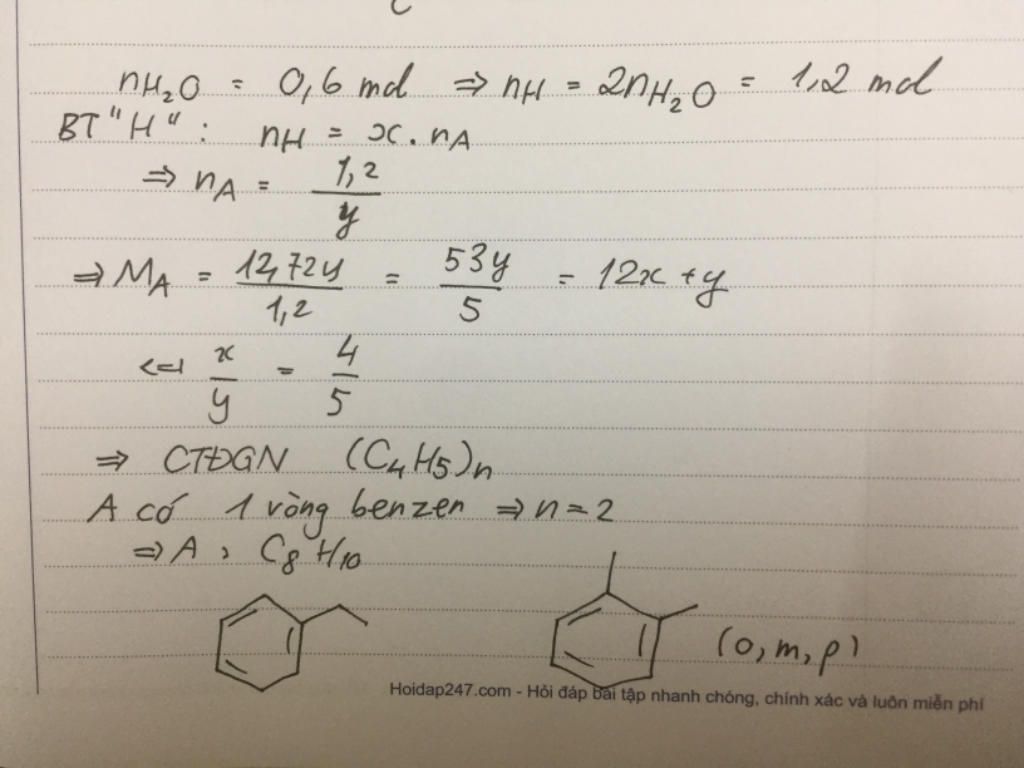 nH₂O = 0,6 mol ⇒ nH = 2nH₂O = 1,2 mol
BT "H" : nH = x . nA
⇒ nA = 1,2 / y
⇒ MA = 12,72y / 1,2 = 53y / 5 = 12x + y
<=> x / y = 4 / 5
⇒ CTĐGN (C₄H₅)n
A có 1 vòng benzen ⇒ n = 2
⇒ A : C₈H₁₀
(o, m, p)
Hoidap247.com - Hỏi đáp bài tập nhanh chóng, chính xác và luôn miễn phí